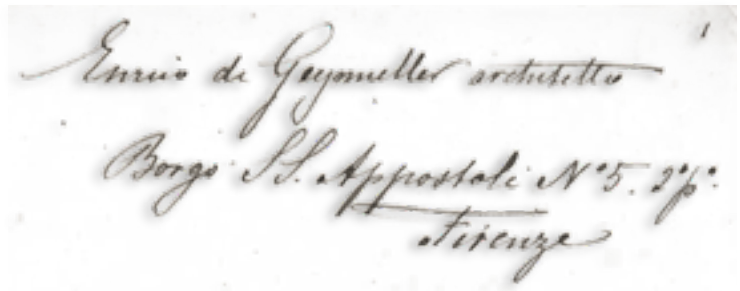 1
Enrico di Geymüller architetto
Borgo SS. Appostoli N°5. 2°p°.
Firenze